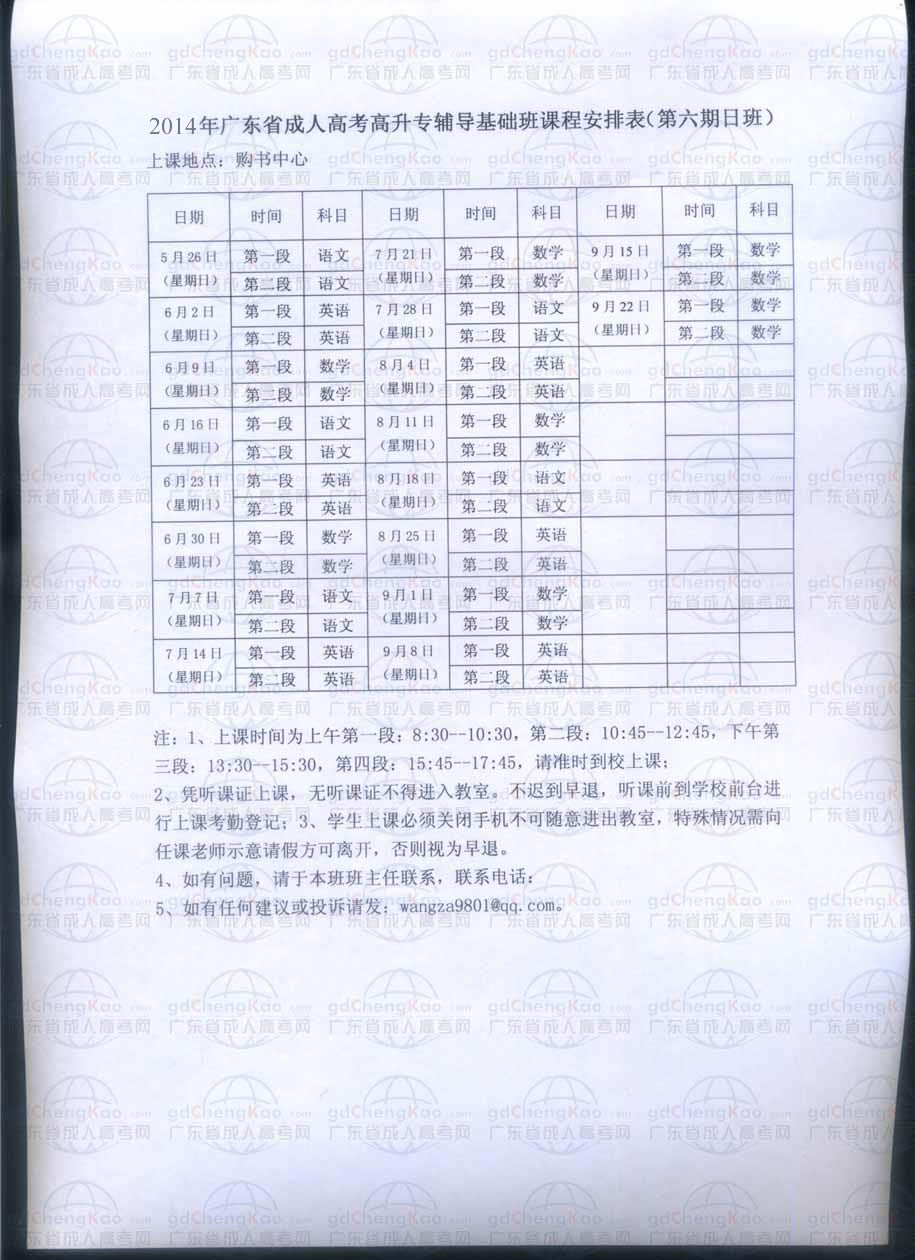 2014年广东省成人高考高升专辅导基础班课程安排表(第六期日班)
上课地点：购书中心
日期 时间 科目 日期 时间 科目 日期 时间 科目
5月26日 第一段 语文 7月21日 第一段 数学 9月15日 第一段 数学
(星期日) 第二段 语文 (星期日) 第二段 数学 (星期日) 第二段 数学
6月2日 第一段 英语 7月28日 第一段 语文 9月22日 第一段 数学
(星期日) 第二段 英语 (星期日) 第二段 语文 (星期日) 第二段 数学
6月9日 第一段 数学 8月4日 第一段 英语
(星期日) 第二段 数学 (星期日) 第二段 英语
6月16日 第一段 语文 8月11日 第一段 数学
(星期日) 第二段 语文 (星期日) 第二段 数学
6月23日 第一段 英语 8月18日 第一段 语文
(星期日) 第二段 英语 (星期日) 第二段 语文
6月30日 第一段 数学 8月25日 第一段 英语
(星期日) 第二段 数学 (星期日) 第二段 英语
7月7日 第一段 语文 9月1日 第一段 数学
(星期日) 第二段 语文 (星期日) 第二段 数学
7月14日 第一段 英语 9月8日 第一段 英语
(星期日) 第二段 英语 (星期日) 第二段 英语
注：1、上课时间为上午第一段：8:30--10:30，第二段：10:45--12:45，下午第
三段：13:30--15:30，第四段：15:45--17:45，请准时到校上课；
2、凭听课证上课，无听课证不得进入教室。不迟到早退，听课前到学校前台进
行上课考勤登记；3、学生上课必须关闭手机不可随意进出教室，特殊情况需向
任课老师示意请假方可离开，否则视为早退。
4、如有问题，请于本班班主任联系，联系电话：
5、如有任何建议或投诉请发：wangza9801@qq.com。
gdChengKao.com
广东省成人高考网